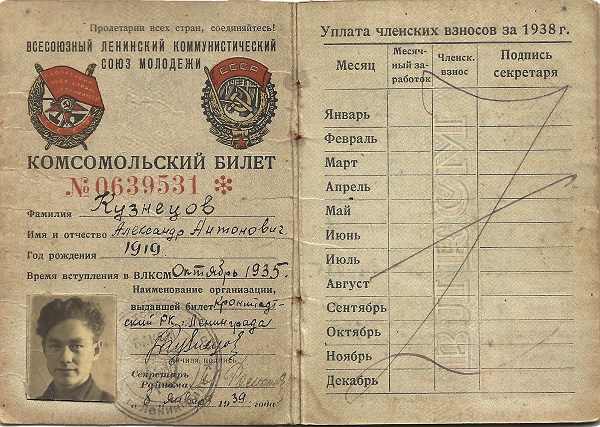 Пролетарии всех стран, соединяйтесь!
ВСЕСОЮЗНЫЙ ЛЕНИНСКИЙ КОММУНИСТИЧЕСКИЙ
СОЮЗ МОЛОДЕЖИ
СССР
КОМСОМОЛЬСКИЙ БИЛЕТ
№ 0639531 *
Фамилия Кузнецов
Имя и отчество Александр Антонович
Год рождения 1919
Время вступления в ВЛКСМ Октябрь 1935г.
Наименование организации,
выдавшей билет Кронштадт-
ский РК г. Ленинграда
Личная подпись
Секретарь
Райкома
8 января 1939 года
Уплата членских взносов за 1938 г.
Месяц
Месяч-
ный за-
работок
Членск.
взнос
Подпись
секретаря
Январь
Февраль
Март
Апрель
Май
Июнь
Июль
Август
Сентябрь
Октябрь
Ноябрь
Декабрь
ВЛКСМ